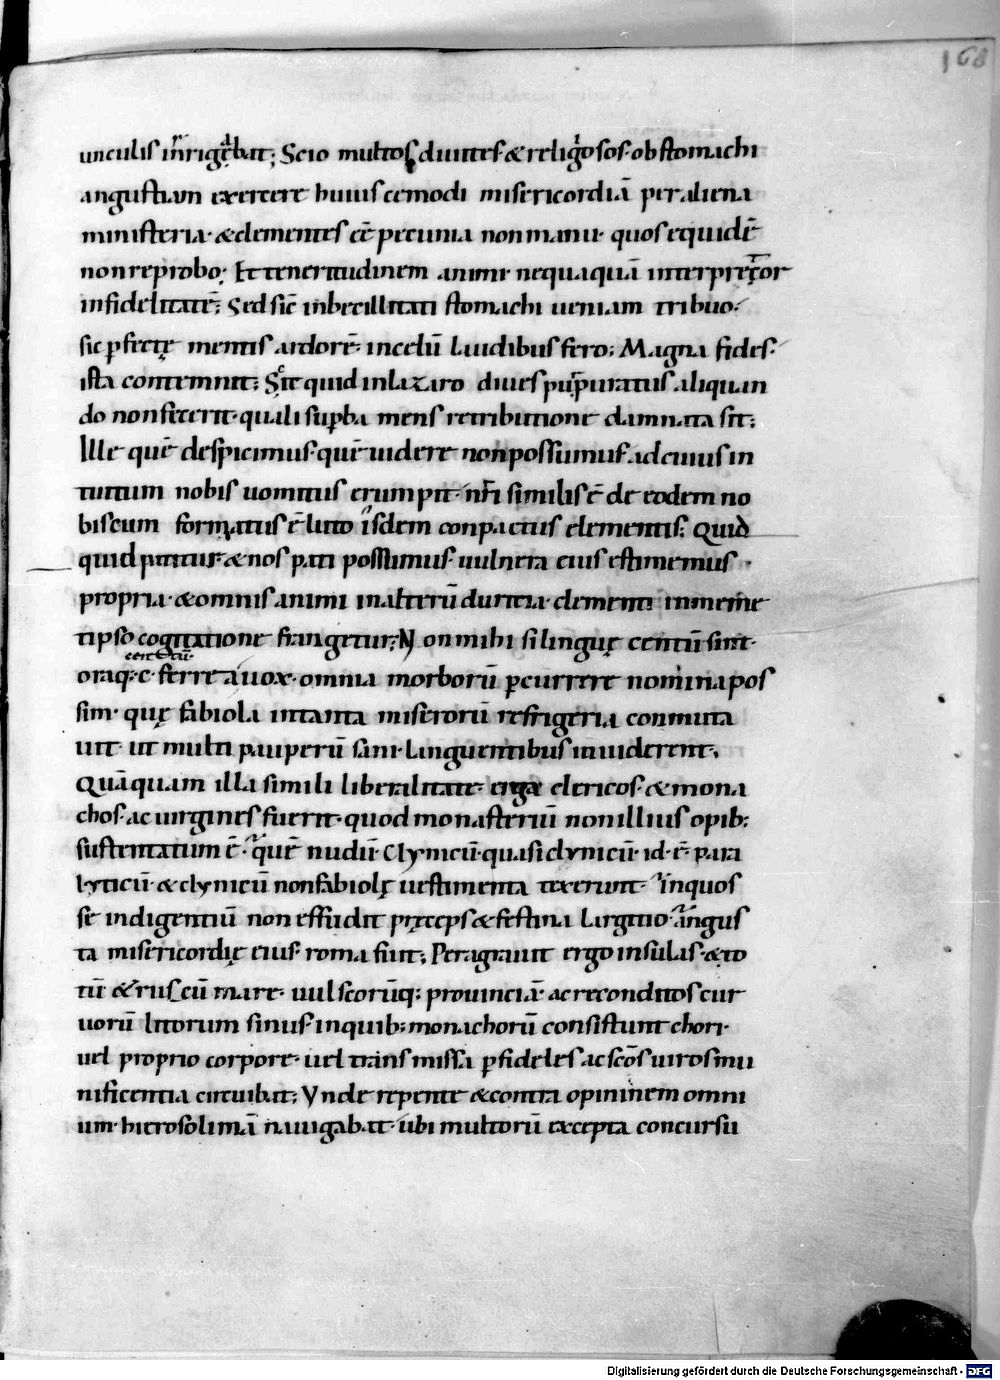 168
unculis inrigabat; Scio multos diuites & religiosos ob stomachi
angustiam exercere huiuscemodi misericordiā per aliena
ministeria · & clementes eē pecunia non manu · quos equidē
non reprobo; Et teneritudinem animi · nequaquā interpretor
infidelitatē; Sed sic inbecillitati stomachi ueniam tribuo ·
sic pfectę mentis ardorē · in celū laudibus fero; Magna fides ·
ista contemnit; Scit quid in lazaro diues purpuratus aliquan
do non fecerit · quali supba mens retributione damnata sit;
Ille quē despicimus · quē uidere non possumus · ad cuius in
tuitum nobis uomitus erumpit · nr̄i similis ē de eodem no
biscum formatus ē luto isdem conpactus elementis; Quid
quid patitur · & nos pati possumus · uulnera eius estimemus ·
propria · & omnis animi in alterū duritia · clementi in meme
tipso cogitatione frangetur; Non mihi si linguę centū sint ·
cent̄ū
oraq; · c · ferrea uox · omnia morborū pcurrere nomina pos
sim · quę fabiola in tanta miserorū refrigeria conmuta
uit · ut multi pauperū sani · languentibus inuiderent;
Quāquam illa simili liberalitate · erga clericos · & mona
chos · ac uirgines fuerit · quod monasteriū non illius opib;
sustentatum ē · quē nudū · Clynicū · quasi clynicū · id · ē · para
lyticū · & clynicū non fabiolę uestimenta texerunt · in quos
se indigentiū non effudit pręceps & festina largitio · angus
ta misericordię eius · roma fuit; Peragrauit ergo insulas · & to
tū & ruscū mare · uulscorūq; prouinciā · ac reconditos cur
uorū litorum sinus · in quib; monachorū consistunt chori ·
uel proprio corpore · uel transmissa p fideles ac scōs uiros mu
nificentia circuibat; Vnde repente & contra opininem omni
um · hierosolimā nauigabat · ubi multorū excepta concursu
Digitalisierung gefördert durch die Deutsche Forschungsgemeinschaft - DFG